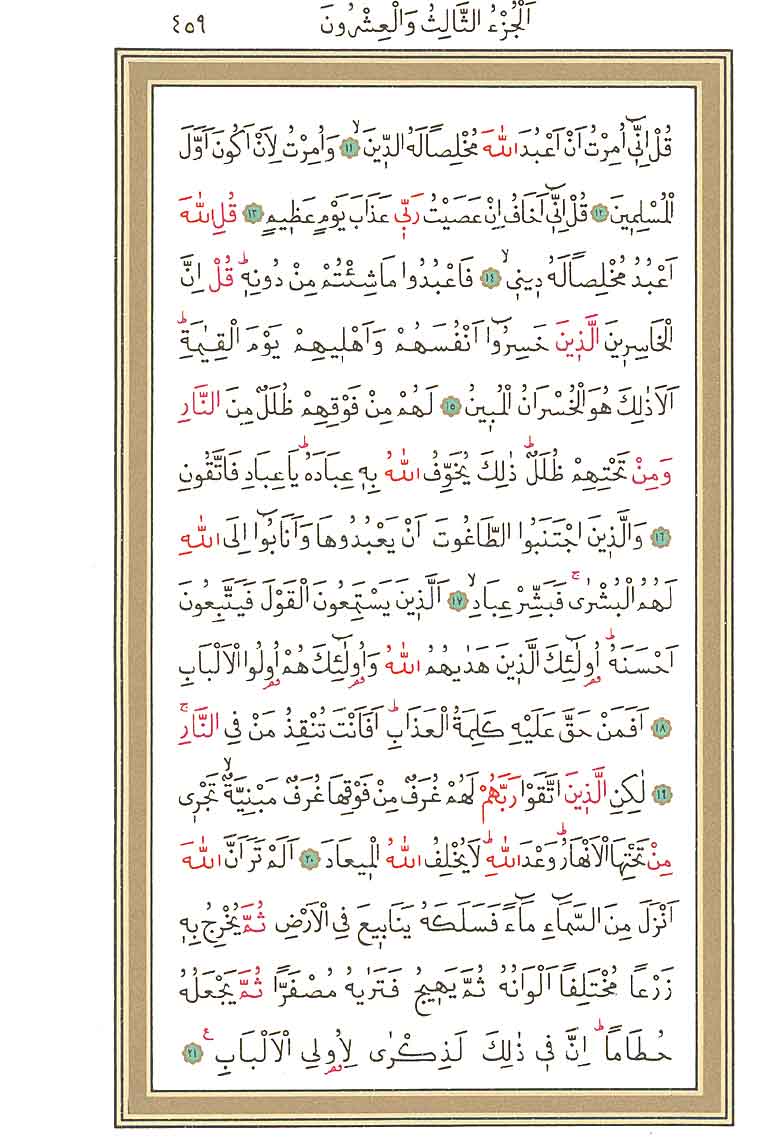 اَلْجُزْءُ الثَّالِثُ وَالْعِشْرُونَ ٤٥٩
قُلْ اِنّٖٓي اُمِرْتُ اَنْ اَعْبُدَ اللّٰهَ مُخْلِصاً لَهُ الدّٖينَۙ ﴿١١﴾ وَاُمِرْتُ لِاَنْ اَكُونَ اَوَّلَ
الْمُسْلِمٖينَ ﴿١٢﴾ قُلْ اِنّٖٓي اَخَافُ اِنْ عَصَيْتُ رَبّٖي عَذَابَ يَوْمٍ عَظٖيمٍ ﴿١٣﴾ قُلِ اللّٰهَ
اَعْبُدُ مُخْلِصاً لَهُ دٖينٖيۙ ﴿١٤﴾ فَاعْبُدُوا مَا شِئْتُمْ مِنْ دُونِهٖؕ قُلْ اِنَّ
الْخَاسِرٖينَ الَّذٖينَ خَسِرُٓوا اَنْفُسَهُمْ وَاَهْلٖيهِمْ يَوْمَ الْقِيٰمَةِؕ
اَلَا ذٰلِكَ هُوَ الْخُسْرَانُ الْمُبٖينُ ﴿١٥﴾ لَهُمْ مِنْ فَوْقِهِمْ ظُلَلٌ مِنَ النَّارِ
وَمِنْ تَحْتِهِمْ ظُلَلٌؕ ذٰلِكَ يُخَوِّفُ اللّٰهُ بِهٖ عِبَادَهُؕ يَا عِبَادِ فَاتَّقُونِ
﴿١٦﴾ وَالَّذٖينَ اجْتَنَبُوا الطَّاغُوتَ اَنْ يَعْبُدُوهَا وَاَنَابُٓوا اِلَى اللّٰهِ
لَهُمُ الْبُشْرٰىۚ فَبَشِّرْ عِبَادِۙ ﴿١٧﴾ اَلَّذٖينَ يَسْتَمِعُونَ الْقَوْلَ فَيَتَّبِعُونَ
اَحْسَنَهُؕ اُو۬لٰٓئِكَ الَّذٖينَ هَدٰيهُمُ اللّٰهُ وَاُو۬لٰٓئِكَ هُمْ اُو۬لُوا الْاَلْبَابِ
﴿١٨﴾ اَفَمَنْ حَقَّ عَلَيْهِ كَلِمَةُ الْعَذَابِؕ اَفَاَنْتَ تُنْقِذُ مَنْ فِي النَّارِۚ
﴿١٩﴾ لٰكِنِ الَّذٖينَ اتَّقَوْا رَبَّهُمْ لَهُمْ غُرَفٌ مِنْ فَوْقِهَا غُرَفٌ مَبْنِيَّةٌۙ تَجْرٖي
مِنْ تَحْتِهَا الْاَنْهَارُؕ وَعْدَ اللّٰهِؕ لَا يُخْلِفُ اللّٰهُ الْمٖيعَادَ ﴿٢٠﴾ اَلَمْ تَرَ اَنَّ اللّٰهَ
اَنْزَلَ مِنَ السَّمَٓاءِ مَٓاءً فَسَلَكَهُ يَنَابٖيعَ فِي الْاَرْضِ ثُمَّ يُخْرِجُ بِهٖ
زَرْعاً مُخْتَلِفاً اَلْوَانُهُ ثُمَّ يَهٖيجُ فَتَرٰيهُ مُصْفَرّاً ثُمَّ يَجْعَلُهُ
حُطَاماًؕ اِنَّ فٖي ذٰلِكَ لَذِكْرٰى لِاُو۬لِي الْاَلْبَابِ ع ﴿٢١﴾